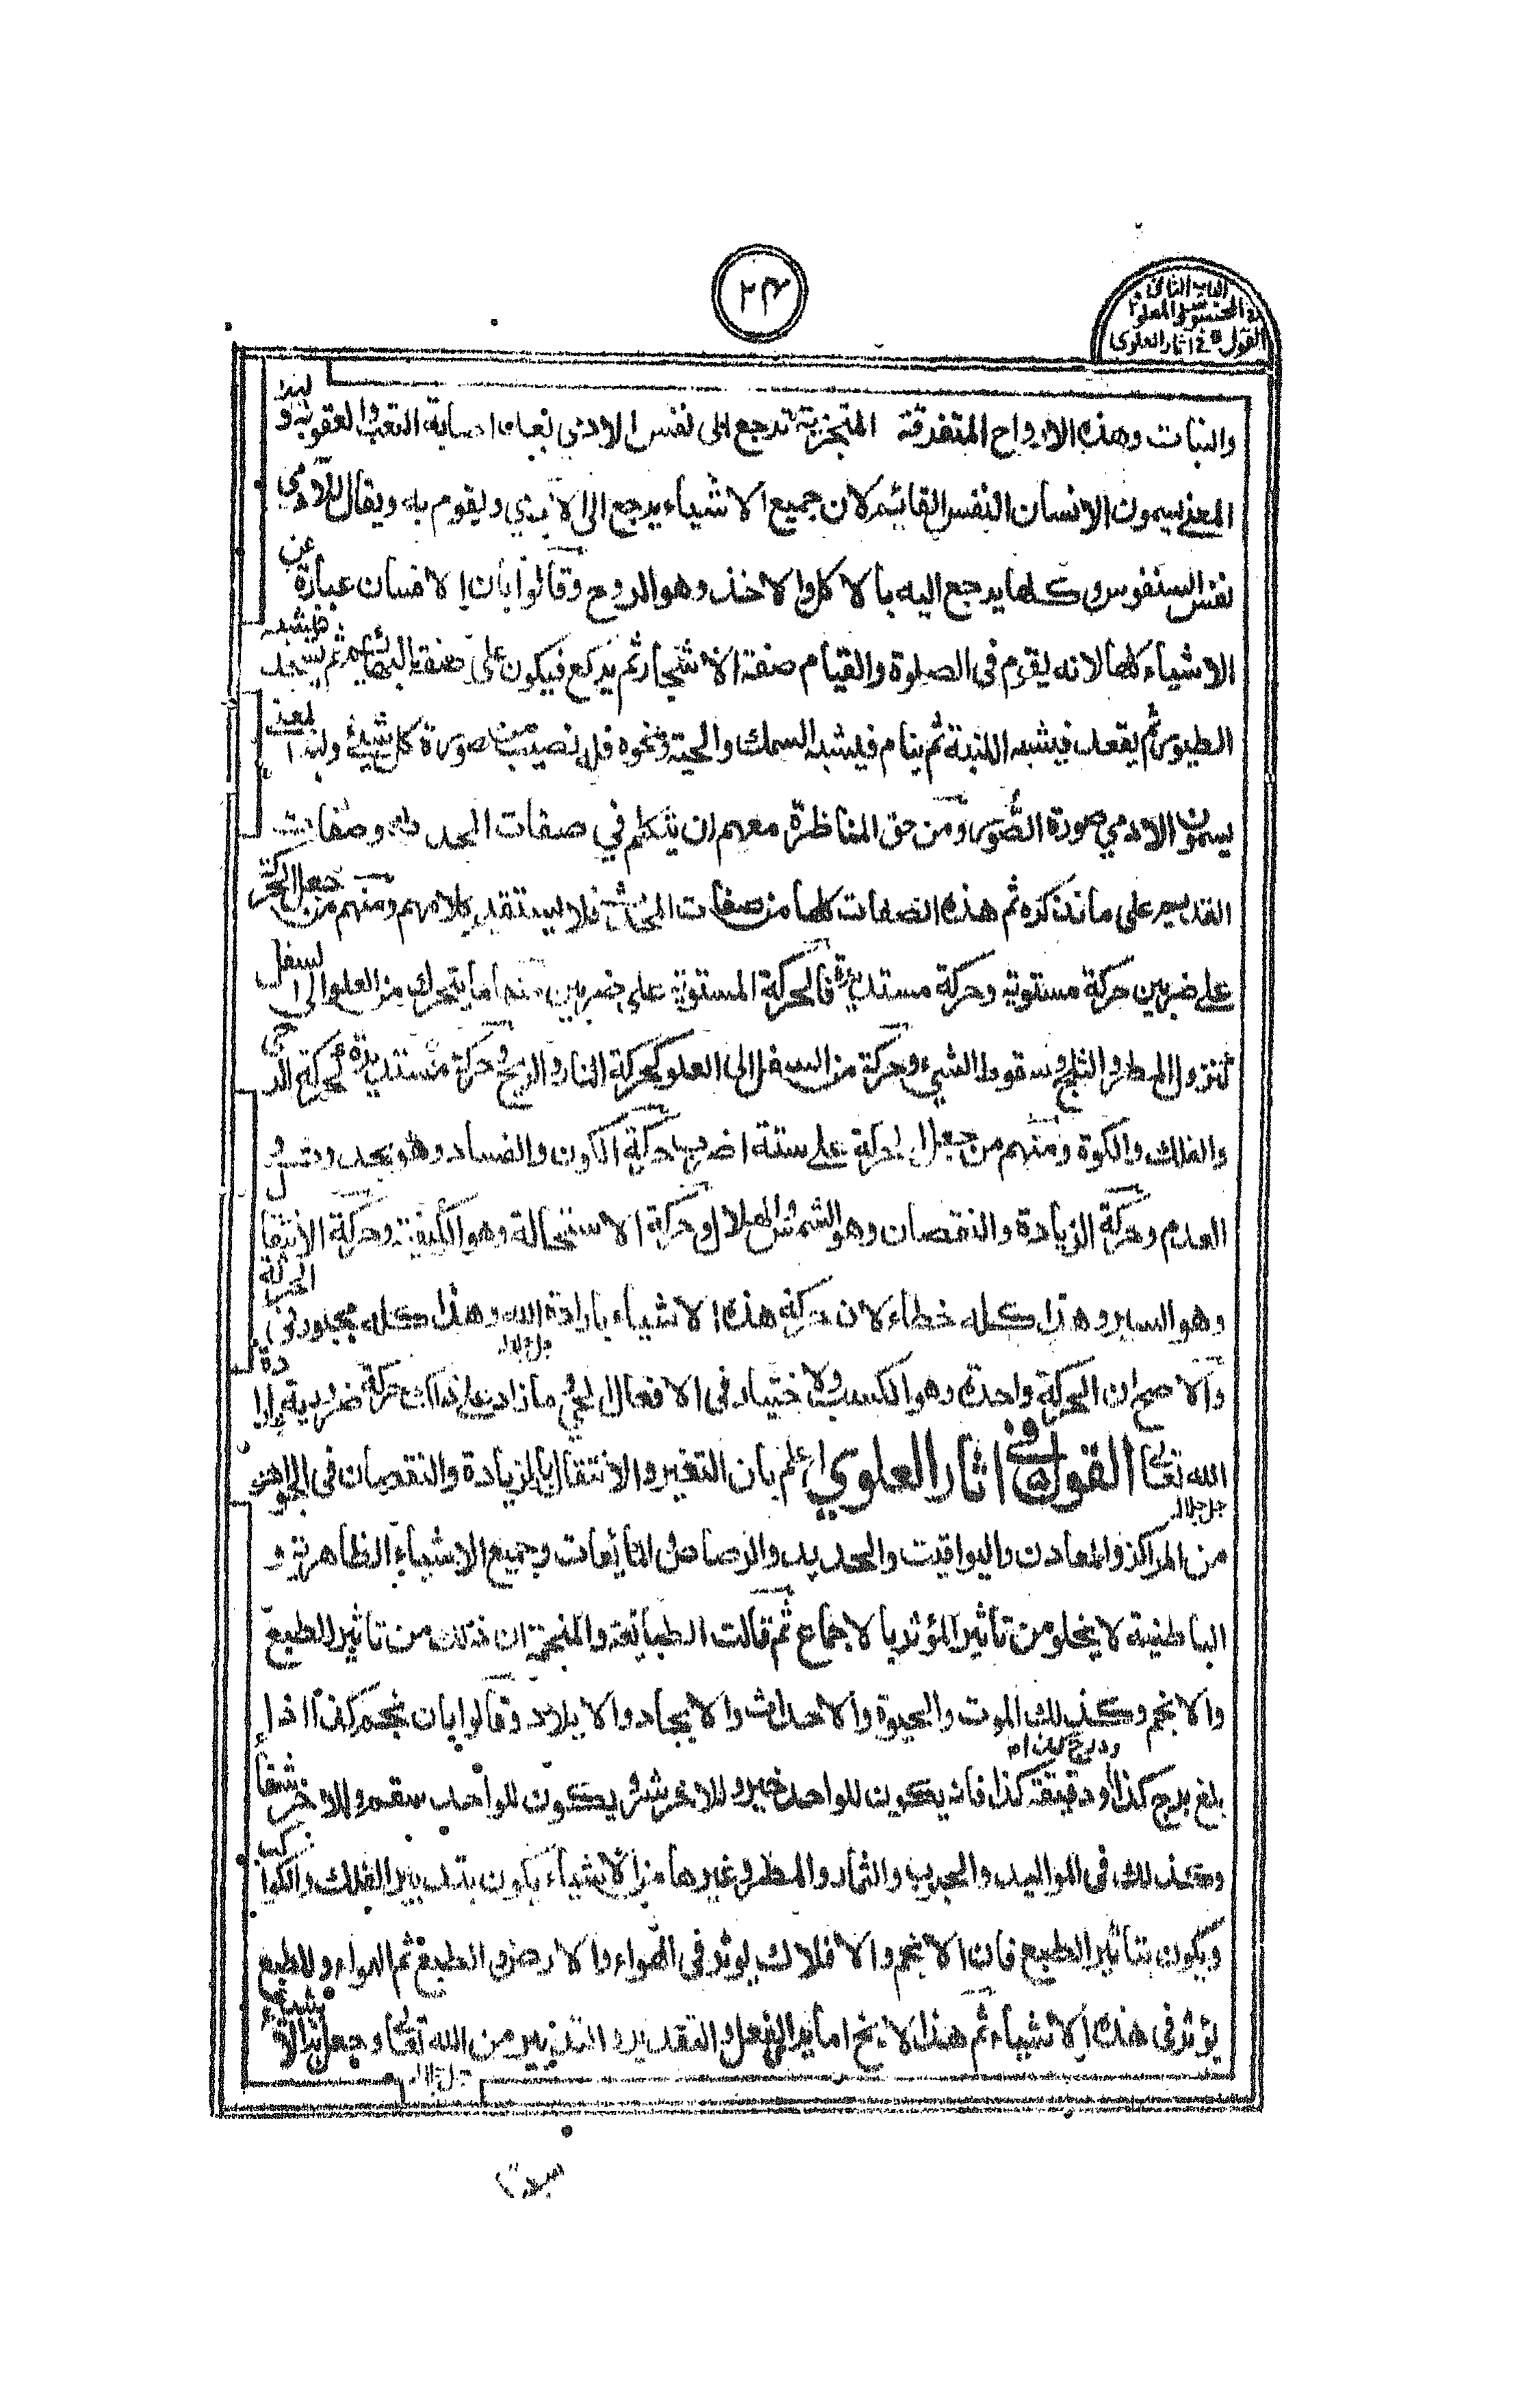 ٢٣
الباب الثاني
في المحسوس والمعلوم
القول في اثار العلوى
والنبات وهذه الارواح المتفرقة المتجزية ترجع الى نفس الادمي بعد اصابة التعب والعقوبة ولهذا
المعنى يسمون الانسان النفس القائم لان جميع الاشياء يرجع الى الادمي ويقوم به ويقال للآدمي
نفس النفوس وكلها يرجع اليه بالاكل والاخذ وهو الروح وقالوا بان الانسان عبارة عن
الاشياء كلها لانه يقوم في الصلوة والقيام صفة الاشجار ثم يركع فيكون على صفة البهائم ثم يسجد فيشبه
الطيور ثم يقعد فيشبه ثم ينام فيشبه السمك والحية ونحوه فله نصيب من صورة كل شيئ ولهذا المعنى
يسمون الادمي صورة الصور ومن حق المناظرة معهم ان يتكلم في صفات المحدث وصفات
القديم على ما نذكره ثم هذه الصفات كلها من صفات فلا يستقيم كلامهم ومنهم من جعل الحركة
على ضربين حركة مستوية وحركة مستديرة فالحركة المستوية على ضربين منها ما يتحرك من العلو الى السفل
كنزول المطر والثلج وسقوط الشيء وحركة من السفل الى العلو كحركة النار والريح وحركة مستديرة كحركة الرحى
والفلك والكرة ومنهم من جعل الحركة على ستة اضرب حركة الكون والفساد وهو
العدم وحركة الزيادة والنقصان وهو الشمس والهلال وحركة الاستحالة وهو الكيفية وحركة الانتقال
وهو السير وهذا كله خطاء لان حركة هذه الاشياء بارادة الله جل جلاله وهذا كله مجبور في الحركة
والاصح ان الحركة واحدة وهو الكسب والاختيار في الافعال وما زاد على ذلك حركة ضرورية بارادة
الله تعالى جل جلاله القول في اثار العلوي اعلم بان التغير والانتقال بالزيادة والنقصان في الجواهر
من المراكز والمعادن واليواقيت والحديد والرصاص المائعات وجميع الاشياء الظاهرية و
الباطنية لا يخلو من تأثير المؤثر بالاجماع ثم قالت الطبائعة والمنجمة ان ذلك من تاثير الطبع
والانجم وكذلك الموت والحيوة والاحداث والايجاد والايلاد وقالوا بان نجم كذا اذا
بلغ بدرج كذا ودرج كذا او دقيقة كذا فانه يكون للواحد خير وللاخر شر ويكون للواحد سقم وللاخر شفاء
وكذلك في المواليد والجدب والثمار والمطر وغيرها من الاشياء يكون بتدبير الفلك والكواكب
ويكون بتاثير الطبع فان الانجم والافلاك يوثر في الهواء والارض والطبع ثم الهواء والطبع
يؤثر في هذه الاشياء ثم هذا لا يخ اما يرا الفعل والتقدير والتدبير من الله تعالى جل جلاله وجعل هذا الاشياء